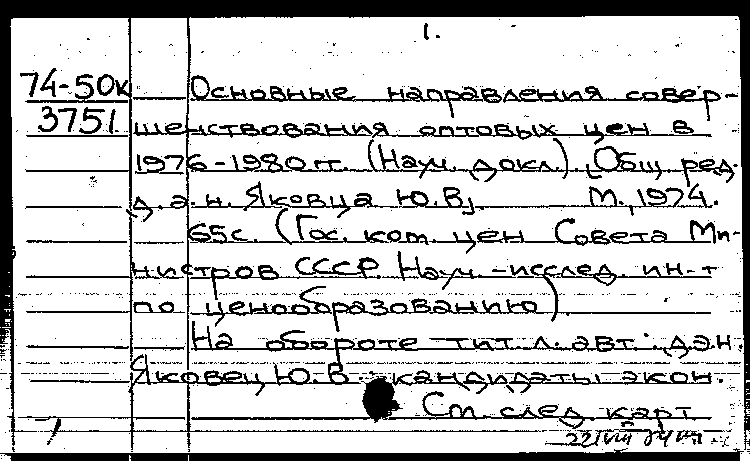 1.
74-50к Основные направления совер-
3751 шенствования оптовых цен в
1976-1980 гг. (Науч. докл.) [Общ. ред.
д.э.н. Яковца Ю.В.]. М., 1974.
65с. (Гос. ком. цен Совета Ми-
нистров СССР. Науч.-исслед. ин-т
по ценообразованию).
На обороте тит. л. авт.: д.э.н.
Яковец Ю.В. кандидаты экон.
См. след. карт.